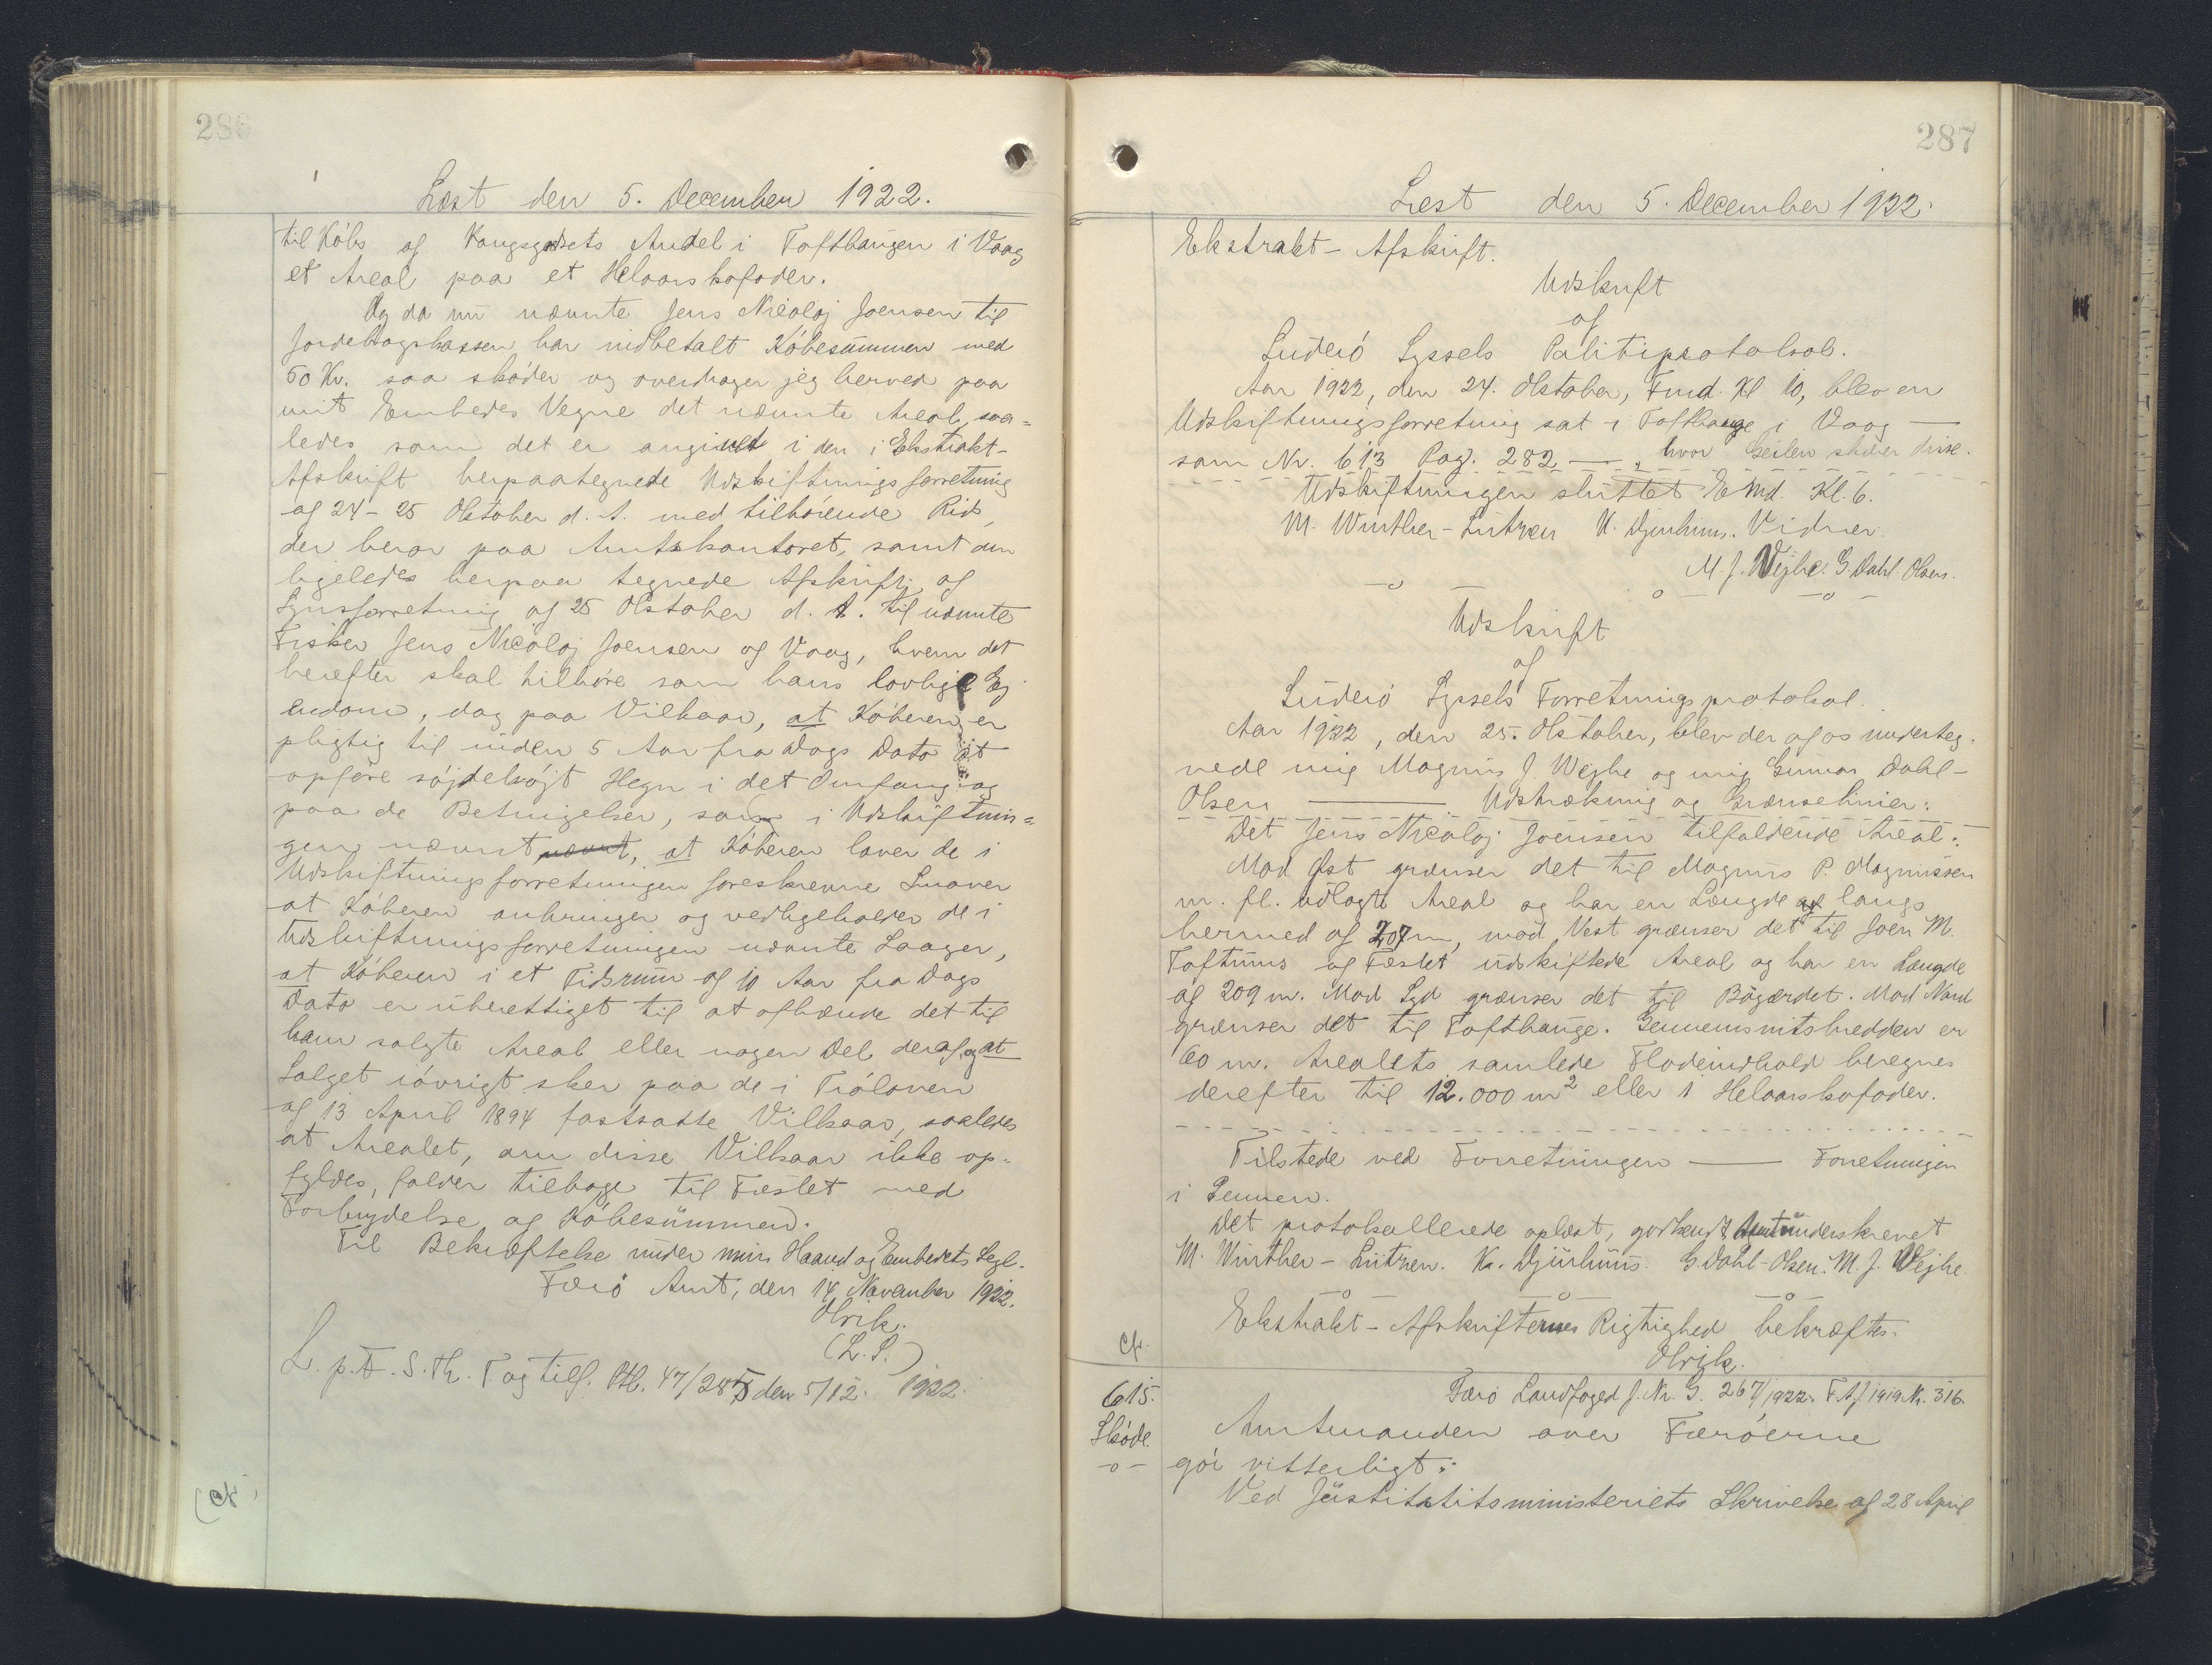 286
Læst den 5. December 1922.
til Købs af Kongsgodsets Andel i Tofthaugen i Vaag
et Areal paa et Helaarskofoder.
Og da nu nævnte Jens Nicolaj Joensen til
Jordebogskassen har indbetalt Købesummen med
50 Kr. saa skøder og overdrager jeg herved paa
mit Embedes Vegne det nævnte Areal, saa=
ledes som det er angivet i den i Ekstrakt-
Afskrift herpaategnede Udskiftningsforretning
af 24 - 25 Oktober d. A. med tilhørende Rids,
der beror paa Amtskontoret, samt den
ligeledes herpaa tegnede Afskrift af
Synsforretning af 25 Oktober d. A. til nævnte
Fisker Jens Nicolaj Joensen af Vaag, hvem det
herefter skal tilhøre som hans lovlige Ej
endom, dog paa Vilkaar, at Køberen er
pligtig til inden 5 Aar fra Dags Dato at
opføre søjdehøjt Hegn i det Omfang og
paa de Betingelser, som i Udskiftnin=
gen nævnt nævnt, at Køberen laver de i
Udskiftningsforretningen foreskrevne Snaver
at Køberen anbringer og vedligeholder de i
Udskiftningsforretningen nævnte Laager,
at Køberen i et Tidsrum af 10 Aar fra Dags
Dato er uberettiget til at afhænde det til
ham solgte Areal eller nogen Del deraf, og at
Salget iøvrigt sker paa de i Frøloven
af 13 April 1894 fastsatte Vilkaar, saaledes
at Arealet, om disse Vilkaar ikke op=
fyldes, falder tilbage til Fæstet med
Forbrydelse af Købesummen.
Til Bekræftelse under min Haand og Embedets Segl.
Færø Amt, den 14 November 1922.
Olrik.
(L. S.)
L. p. F. S. Th. T og tilf. Ptl. 47/285 den 5/12. 1922.
287
Læst den 5. December 1922.
Ekstrakt - Afskrift.
Udskrift
af
Suderø Syssels Politiprotokol.
Aar 1922, den 24. Oktober, Fmd. Kl 10, blev en
Udskiftningsforretning sat i Tofthauge i Vaag —
som Nr. 613 Pag. 282 — , hvor Geilen skærer disse.
Udskiftningen sluttet Emd. Kl. 6.
M. Winther - Lützen K. Djurhuus. Vidner.
M. J. Vejhe. G. Dahl. Olsen.
Udskrift
af
Suderø Syssels Forretningsprotokol.
Aar 1922, den 25. Oktober, blev der af os underteg.
nede mig Magnus J. Wejhe og mig Gunnar Dahl-
Olsen — Udstrækning og Grænselinier:
Det Jens Nicolaj Joensen tilfaldende Areal:
Mod Øst grænser det til Magnus P. Magnussen
m. fl. udlagte Areal og har en Længde af langs
hermed af 207 m, mod Vest grænser det til Joen M.
Toftums af Fæstet udskiftede Areal og har en Længde
af 209 m. Mod Syd grænser det til Bøgærdet. Mod Nord
grænser det til Tofthauge. Gennemsnitsbredden er
60 m. Arealets samlede Fladeindhold beregnes
derefter til 12.000 m² eller 1 Helaarskofoder.
Tilstede ved Forretningen — Forretningen
i Sennen.
Det protokollerede oplæst, godkendt, underskrevet
M. Winther - Lützen. K. Djurhuus. G. Dahl - Olsen. M. J. Wejhe.
Ekstrakt - Afskrifternes Rigtighed bekræftes.
Olrik.
615.
Skøde.
Færø Landfoged J. Nr. G. 267/1922. F. A. J. 1919 Nr. 316.
Amtmanden over Færøerne
gør vitterligt:
Ved Justititsministeriets Skrivelse af 28 April